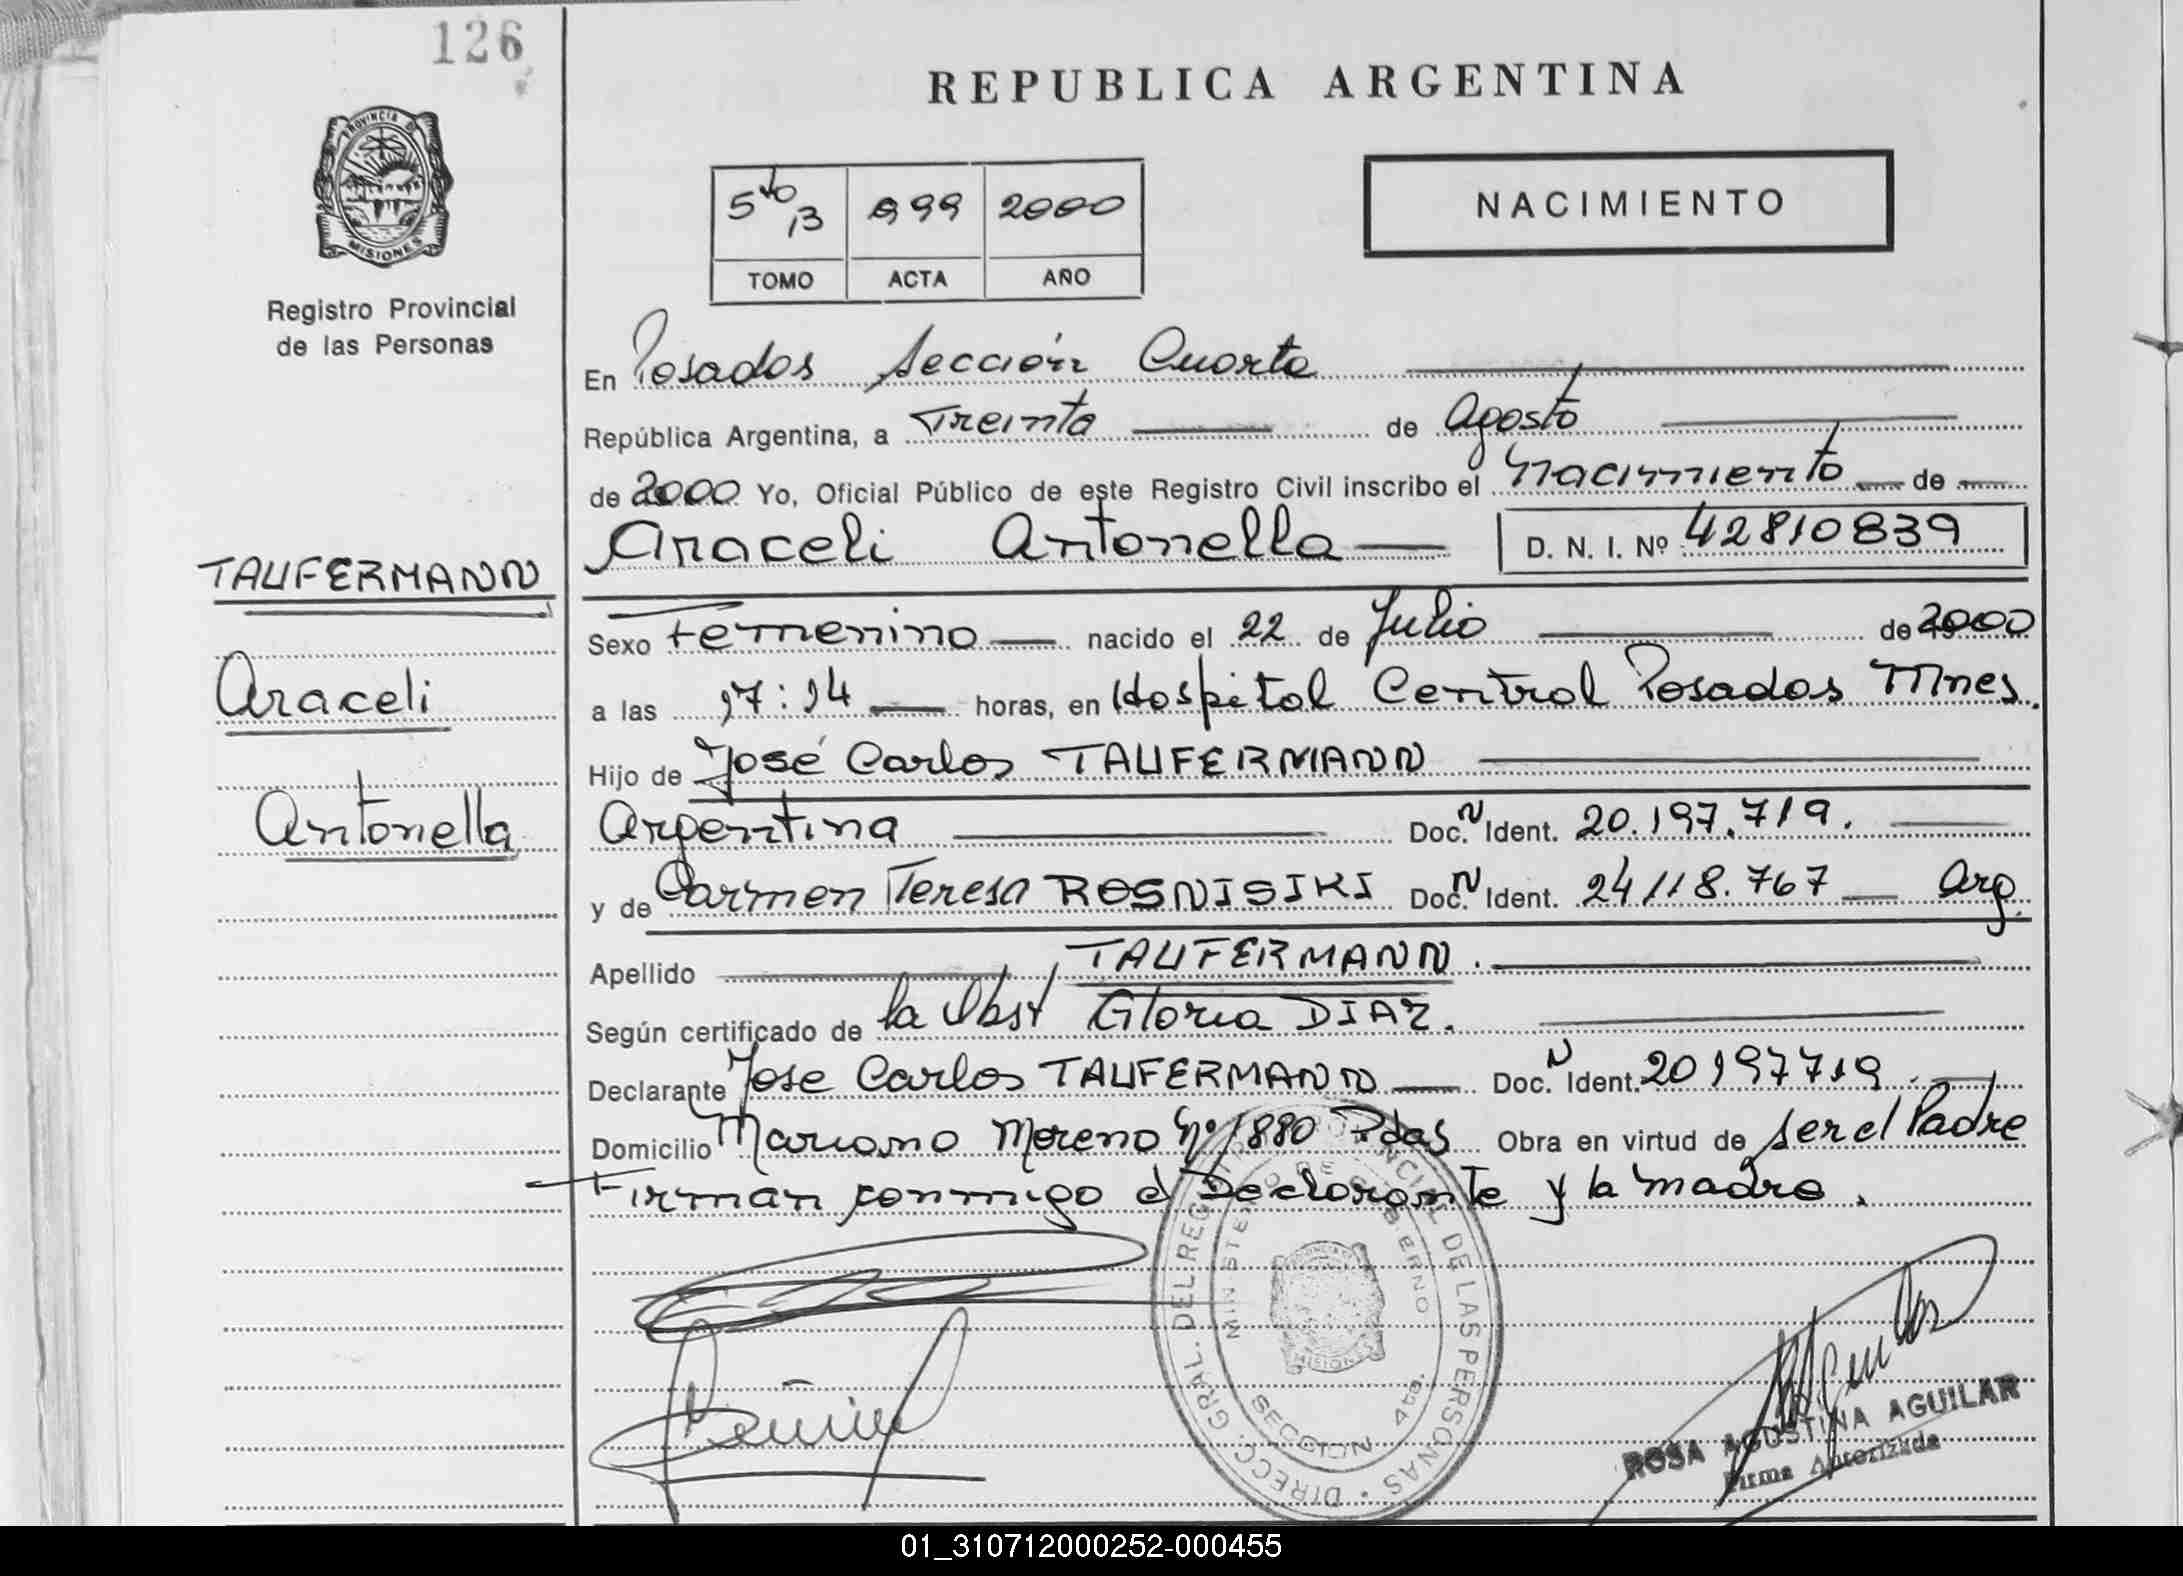 126
REPUBLICA ARGENTINA
PROVINCIA DE
MISIONES
Registro Provincial
de las Personas
NACIMIENTO
5to B 999 2000
TOMO ACTA AÑO
En Posadas Sección Cuarta
República Argentina, a Treinta de Agosto
de 2000 Yo, Oficial Público de este Registro Civil inscribo el Nacimiento de
Araceli Antonella D. N. I. Nº 42810839
TAUFERMANN
Araceli
Antonella
Sexo Femenino nacido el 22 de Julio de 2000
a las 17:14 horas, en Hospital Central Posadas Mnes.
Hijo de José Carlos TAUFERMANN
Argentina Doc. N Ident. 20.197.719.
y de Carmen Teresa ROSNISIKI Doc. N Ident. 24118.767 Arg.
Apellido TAUFERMANN.
Según certificado de la Obst Gloria DIAZ.
Declarante Jose Carlos TAUFERMANN Doc. N Ident. 20197719.
Domicilio Mariano Moreno Nº 1880 Pdas Obra en virtud de ser el Padre
Firman conmigo el Declarante y la madre.
DIRECC. GRAL. DEL REGISTRO PROVINCIAL DE LAS PERSONAS
MINISTERIO DE GOBIERNO
MISIONES
SECCION 4ta.
ROSA AGUSTINA AGUILAR
Firma Autorizada
01_310712000252-000455